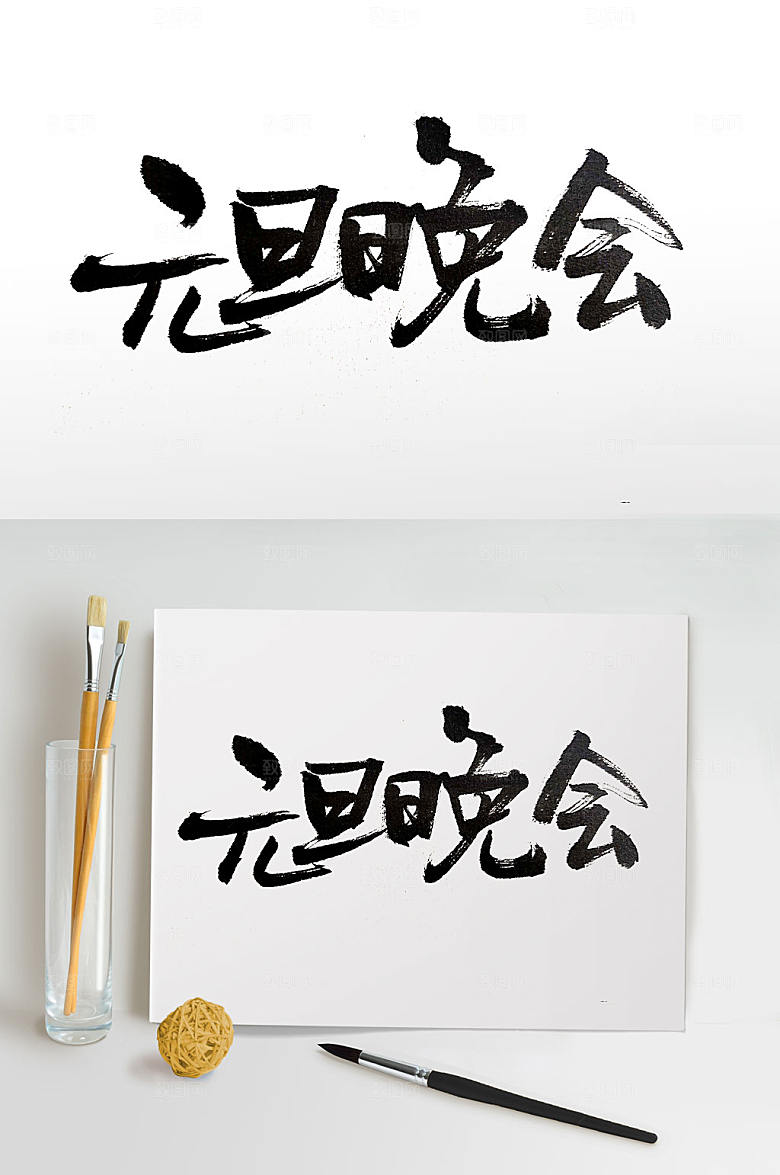 元旦晚会
元旦晚会